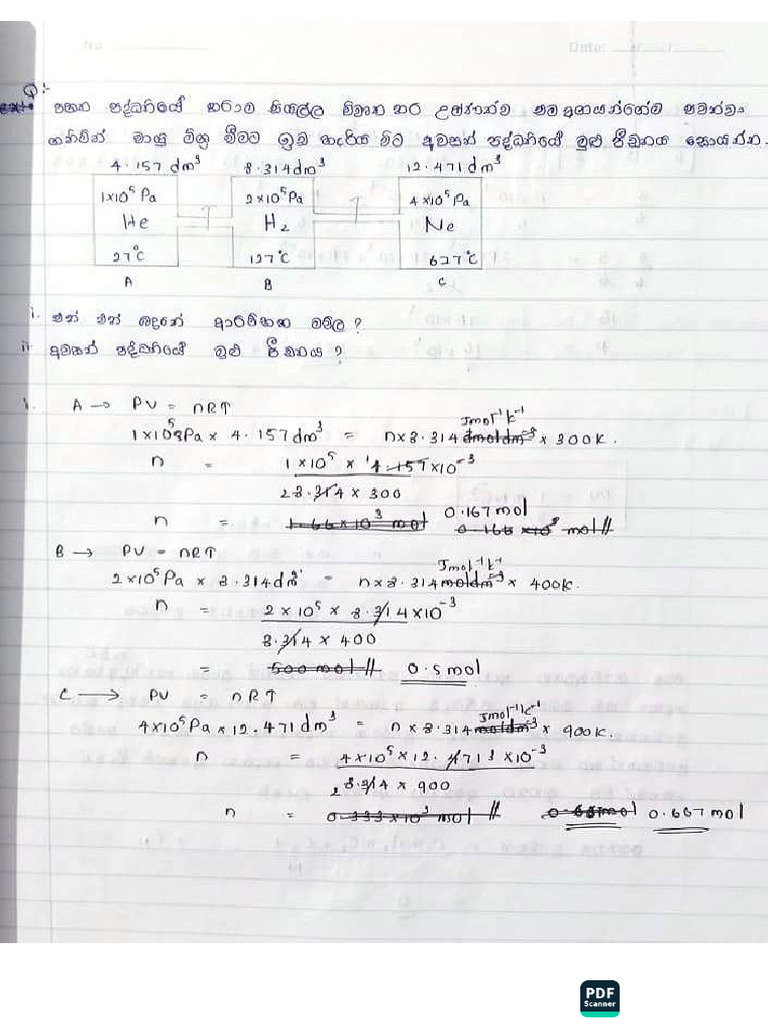 No
Date:
Q:-
පහත පද්ධතියේ කරාම සියල්ල විවෘත කර උෂ්ණත්ව එම අගයන්ගෙම පවත්වා
ගනිමින් වායු මිශ්‍ර වීමට ඉඩ හැරිය විට අවසන් පද්ධතියේ මුළු පීඩනය සොයන්න.
4.157 dm³ 8.314 dm³ 12.471 dm³
1x10⁵ Pa 2x10⁵ Pa 4x10⁵ Pa
He H₂ Ne
27°C 127°C 627°C
A B C
i. එක් එක් බඳුනේ ආරම්භක මවුල ?
ii අවසන් පද්ධතියේ මුළු පීඩනය ?
i. A → PV = nRT
1x10⁵ Pa x 4.157 dm³ = n x 8.314 Jmol⁻¹k⁻¹ x 300k.
n = 1x10⁵ x 4.157x10⁻³
8.314 x 300
n = 1.66x10³ mol 0.167 mol
0.166 x10³ mol//
B → PV = nRT
2x10⁵ Pa x 8.314 dm³ = n x 8.314 Jmol⁻¹k⁻¹ x 400k.
n = 2 x 10⁵ x 8.314x10⁻³
8.314 x 400
= 500 mol // 0.5 mol
C → PV = nRT
4x10⁵ Pa x 12.471 dm³ = n x 8.314 Jmol⁻¹k⁻¹ x 900k.
n = 4x10⁵ x 12.4713 x10⁻³
8.314 x 900
n = 0.333x10³ mol // 0.66 mol 0.667 mol
PDF
Scanner